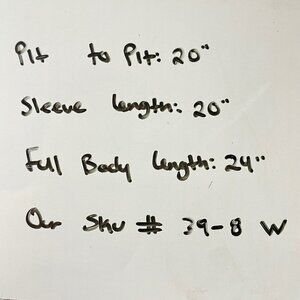 Pit to Pit: 20"
Sleeve length: 20"
Full Body length: 24"
Our Sku # 39-8 W